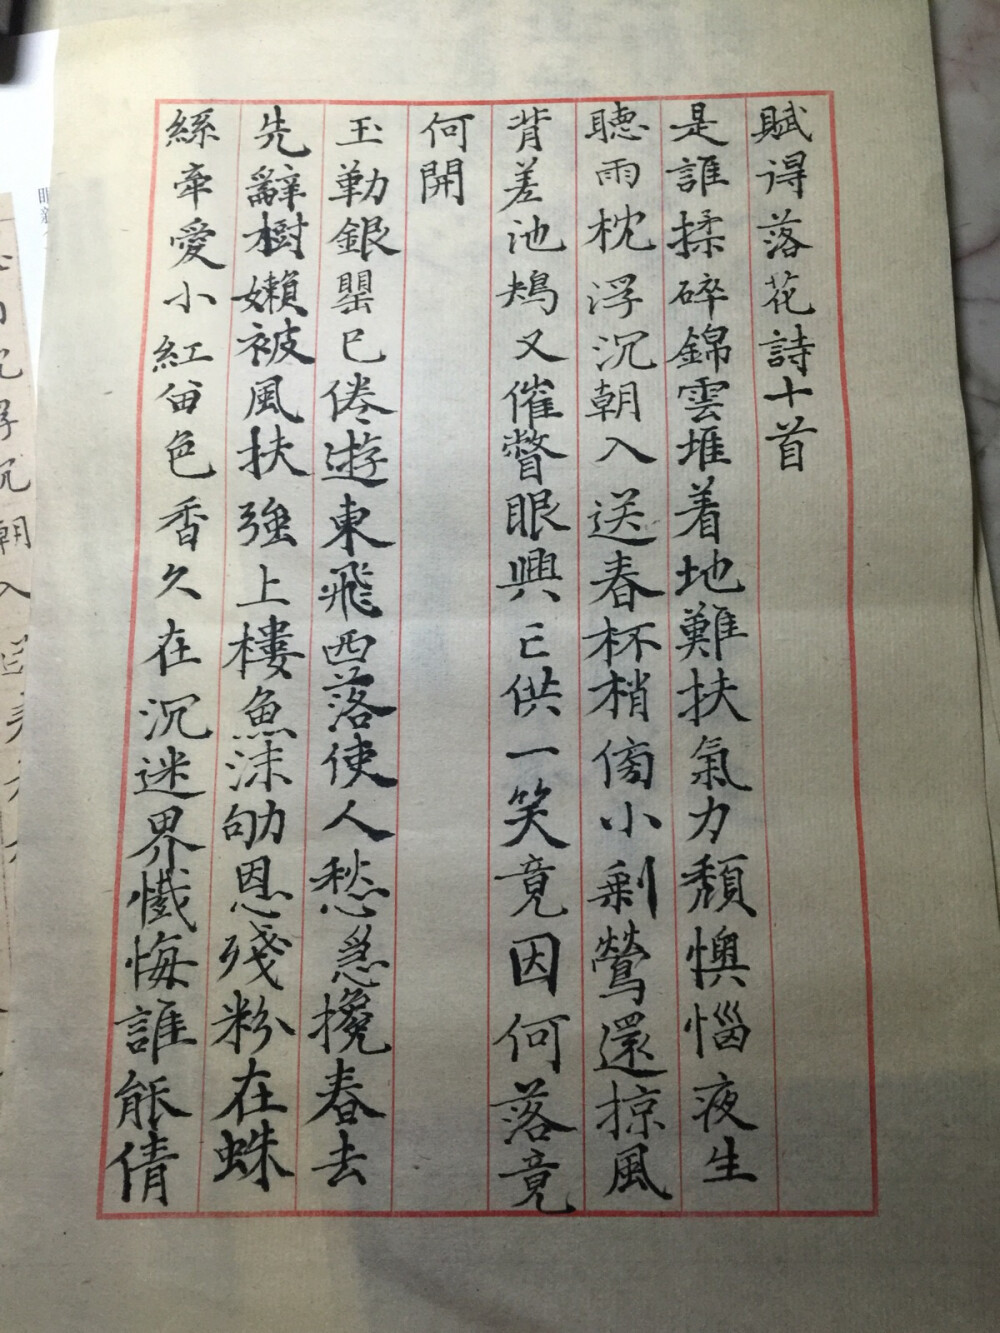 賦得落花詩十首
是誰揉碎錦雲堆着地難扶氣力頹懊惱夜生
聽雨枕浮沉朝入送春杯梢傍小剩鶯還掠風
背差池鳺又催瞥眼興亡供一笑竟因何落竟
何開
玉勒銀罌已倦遊東飛西落使人愁急攙春去
先辭樹嬾被風扶強上樓魚沫劬恩殘粉在蛛
絲牽愛小紅留色香久在沉迷界懺悔誰能倩
浮沉朝入